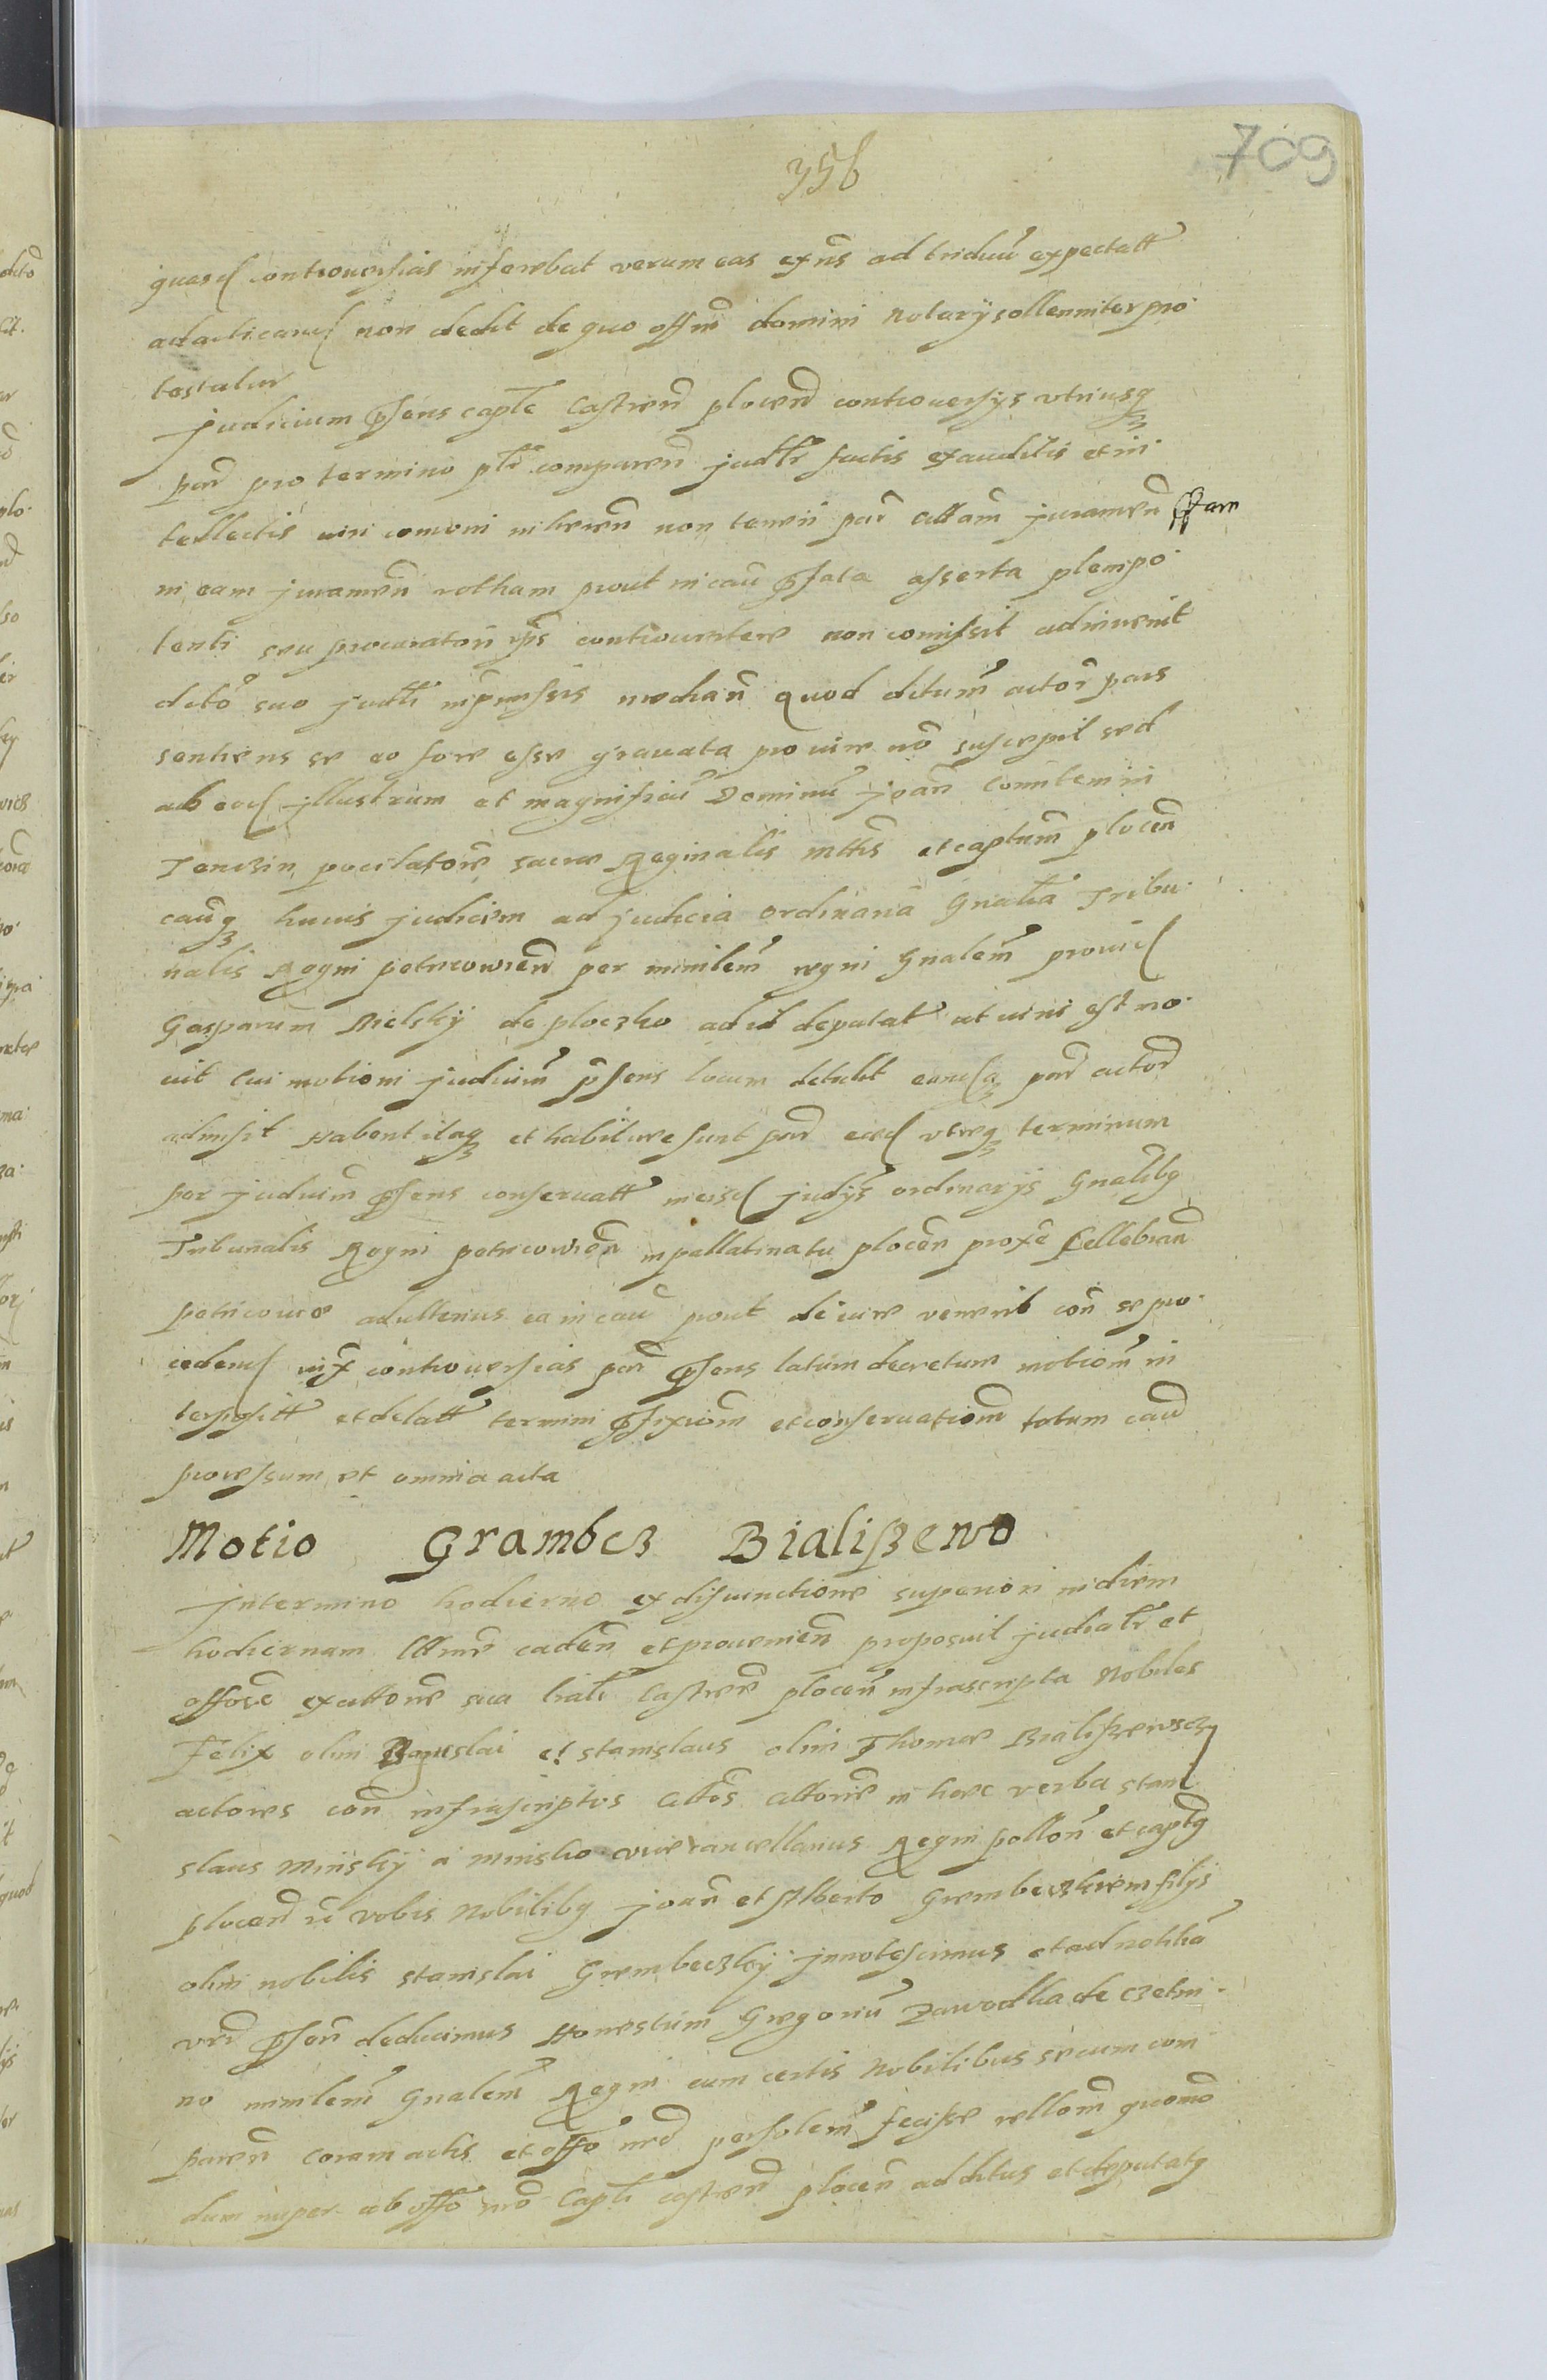 709
356
quasd controuersias inferebat verum eas exns ad triduũ expectatt
adacticand non dedit de quo offm domini Notarÿ sollenniter pro
testatur
Judicium p̃sens caple Castren̄ plocen̄ controuersÿs vtriusq
par pro termino pti comparen̄ judtr factis exauditis et in
tellectis uiri comoni inheren̄ non teneri par attam juramen̄ pstare
in eam juramen̄ rotham prout in cau p̃fata asserta plenipo
tenti seu procuratori controuertere non comissit adinuenit
dcto suo judtli median̄ quod ditum actor pars
sentiens se eo fore esse grauata pro uire nō suscepit sed
ab eod jllustrem et magnificū Dominū joan Comitem in
Tenczin pocilatore sacre Reginalis mttis et captum plocen̄
caūq huius judiciem ad judicia ordinaria Gnalia Tribu
nalis Regni petricowien̄ per minilem regni Gnalem prouid
Gasparum Bielskÿ de ploczko ad id deputat ut uiri est mo
uit Cui motioni judicium p̃sens locum detulit eandq par actor
admisit Habent itaq et habiture sunt par eed vtreq terminum
per judicium p̃sens conseruatt in eisd judÿs ordinarÿs Gnalibq
Tribunalis Regni petricowien̄ in pallatinatu plocen̄ proxe Cellebran̄
petricouie adulterius ea in cau prout de iure venerit con se pro
cedend controuersias par p̃sens latum decretum motiom in
terpositt et delatt termini p̃fixiom et conseruatiom totum cau
processum et omnia acta
Motio Grambcz Bialißewo
Jn termino hodierno ex disiunctione superiori in diem
hodiernam caden̄ et prouenien̄ proposuit judialr et
offose executione sua Castren̄ plocen̄ infrascripta Nobiles
Felix olim et Stanislaus olim Thomae Bialißewsczy
actores con infrascriptos in haec verba Stani
slaus Minskÿ a Minsko vicecancellarius Regni pollon̄ et captq
plocen̄ vobis Nobilibq joan̄ et Alberto Grembeczkiem filÿs
olim nobilis Stanislai Grembeczkÿ jnnotescimus et ad notitiā
p̃sen̄ deducimus Honestum Gregoriū Zawodka de Czetni
no minilem Gnalem Regni cum certis Nobilibus secum com
paren̄ Coram actis et offo nro personlem fecisse rellom quomo
dum nuper ab offo nro Capli castren̄ plocen̄ additus et deputatq